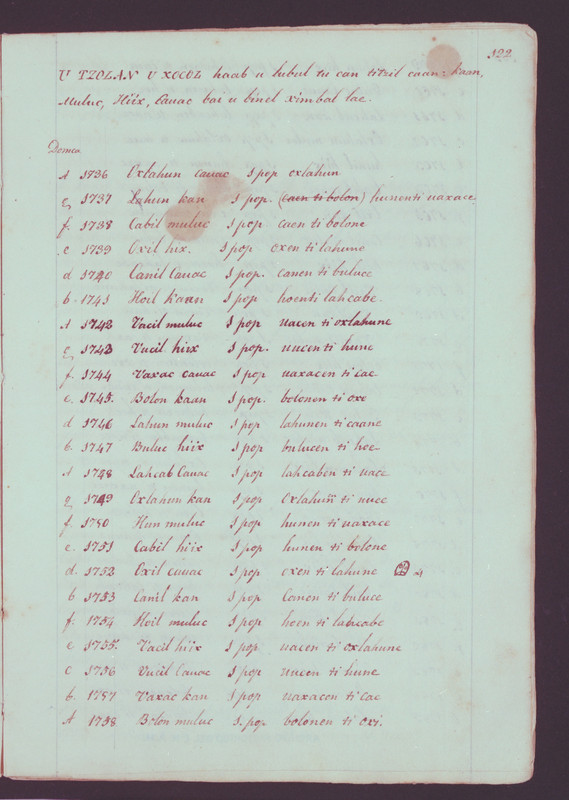 122
U TZOLAN U XOCOL haab u lubul tu can titzil caan: Kaan,
Muluc, Hiix, Cauac bai u binel ximbal lae.
Domca
A 1736 Oxlahun cauac 1 pop oxlahun
g 1737 Lahun kan 1 pop. (caen ti bolon) hunenti uaxace
f. 1738 Cabil muluc 1 pop caen ti bolone
e 1739 Oxil hix. 1 pop oxen ti lahune
d 1740 Canil Cauac 1 pop. canen ti buluce
b. 1741 Hoil Kaan 1 pop hoenti lahcabe.
A 1742 Vacil muluc 1 pop uacen ti oxlahune
g 1743 Vucil hiix 1 pop. uucen ti hune
f. 1744 Vaxac cauac 1 pop uaxacen ti cae
e. 1745. Bolon kaan 1 pop. bolonen ti oxe
d 1746 Lahun muluc 1 pop lahunen ti caane
b. 1747 Buluc hiix 1 pop bulucen ti hoe
A 1748 Lahcab Cauac 1 pop lahcaben ti uace
g 1749 Oxlahun kan 1 pop Oxlahuñ ti uuce
f. 1750 Hun muluc 1 pop hunen ti uaxace
e. 1751 Cabil hiix 1 pop hunen ti bolone
d. 1752 Oxil cauac 1 pop oxen ti lahune
b 1753 Canil kan 1 pop Canen ti buluce
f: 1754 Hoil muluc 1 pop hoen ti lahcabe
e 1755. Vacil hiix 1 pop uacen ti oxlahune
c 1756 Vucil Cauac 1 pop uucen ti hune
b. 1757 Vaxac kan 1 pop uaxacen ti cae
A 1758 Bolon muluc 1. pop bolonen ti oxi.